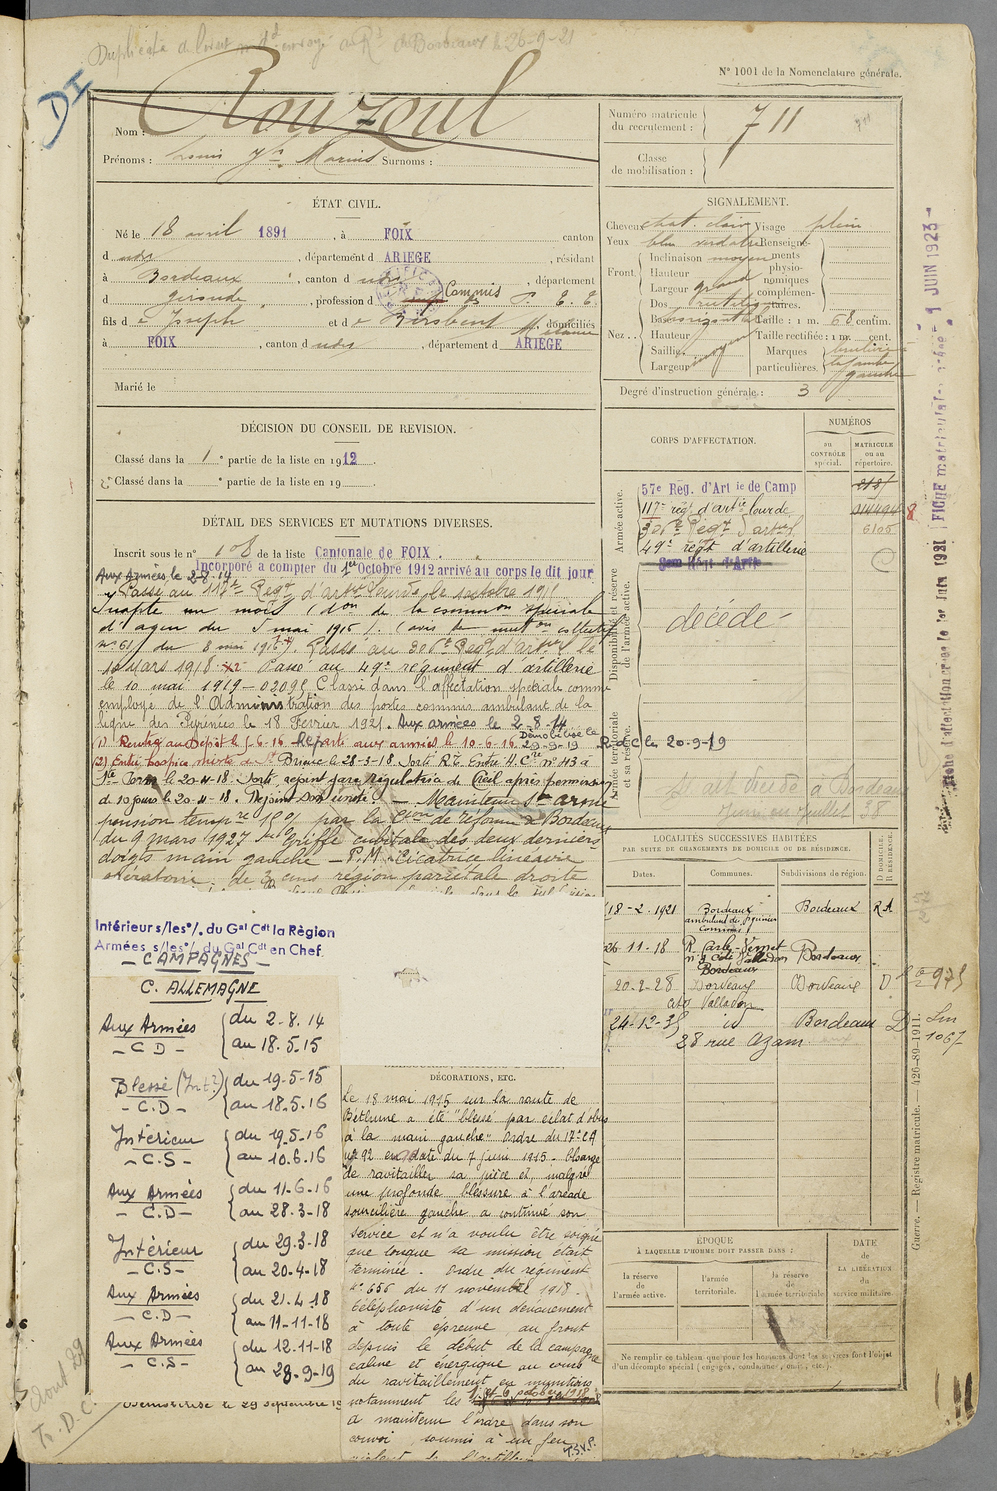 Duplicata du livret envoyé au Rt de Bordeaux le 26-9-21
N° 1001 de la Nomenclature générale.
DI
Nom : Rouzoul
Prénoms : Louis Jn Marius Surnoms :
Numéro matricule du recrutement : 711
Classe de mobilisation :
ÉTAT CIVIL.
Né le 18 avril 1891, à FOIX canton
d udt, département d ARIEGE, résidant
à Bordeaux, canton d udt, département
d gironde, profession d Commis P. E. E.
fils d e Joseph et d e Mélanie, domiciliés
à FOIX, canton d udt, département d ARIEGE
Marié le
SIGNALEMENT.
Cheveux chat. clair Visage plein
Yeux bleu verdatre Renseignements physionomiques complémentaires.
Front. Inclinaison moyen
Hauteur
Largeur grand
Dos rectiligne
Nez. Base horizontal Taille : 1 m. 68 centim.
Hauteur Taille rectifiée : 1 m. cent.
Saillie moyen Marques
Largeur particulières. à la jambe gauche
Degré d'instruction générale : 3
DÉCISION DU CONSEIL DE REVISION.
Classé dans la 1e partie de la liste en 1912.
Classé dans la e partie de la liste en 19
DÉTAIL DES SERVICES ET MUTATIONS DIVERSES.
Inscrit sous le n° 108 de la liste Cantonale de FOIX.
Incorporé a compter du 1er Octobre 1912 arrivé au corps le dit jour
Aux Armées le 2-8-14
Passé au 117e Regt d'artie lourde le 1er octobre 1915
Inapte un mois (don de la common spéciale
d'agen du 5 mai 1916). (avis de muton collectif
n° 61 du 8 mai 1916). Passé au 306e Regt d'artie le
10 mars 1918. Passé au 49e régiment d'artillerie
le 10 mai 1919 - 02095 Classé dans l'affectation spéciale comme
employé de l'Administration des postes commis ambulant de la
ligne des Pyrénées le 18 Février 1921. Aux armées le 2-8-14
Démobilisé le 29-9-19
(1) Rentré au Dépôt le 5-6-16. Reparti aux armées le 10-6-16. R.d.C. le 20-9-19
(2) Entré hospice mixte de St Brieuc le 28-3-18. Sorti R.E. Entré H. Cre n° 43 à
le 20-4-18. Sorti, rejoint gare régulatrice de Creil après permission
de 10 jours le 20-4-18. Rejoint son unité. — Maintenu Sce armé
pension tempre 10% par la Cion de réforme de Bordeaux
du 9 mars 1927 Griffe cubitale des deux derniers
doigts main gauche — P.M. Cicatrice linéaire
opératoire de 3 cms région pariétale droite
CORPS D'AFFECTATION.
NUMÉROS
au CONTRÔLE spécial.
MATRICULE ou au répertoire.
Armée active.
57e Reg. d'Art ie de Camp
117e rég d'artie lourde
306e Regt d'art
6105
49e régt d'artillerie
Disponibilité et réserve de l'armée active.
décédé
Armée territoriale et sa réserve.
est décédé à Bordeaux
juin ou juillet 38
FICHE matricule
1 JUIN 1923
LOCALITÉS SUCCESSIVES HABITÉES
PAR SUITE DE CHANGEMENTS DE DOMICILE OU DE RÉSIDENCE.
Dates. Communes. Subdivisions de région. D DOMICILE. R RÉSIDENCE.
18-2-1921 Bordeaux Bordeaux R A
26-11-18 R. Carle-Vernet
n° 2 Cité Valladon
Bordeaux Bordeaux
20-2-28 Bordeaux Bordeaux D
cité Valladon
24-12-35 id Bordeaux D
28 rue Azam
1067
ÉPOQUE
À LAQUELLE L'HOMME DOIT PASSER DANS :
la réserve de l'armée active.
l'armée territoriale.
la réserve de l'armée territoriale
DATE de LA LIBÉRATION du service militaire.
Ne remplir ce tableau que pour les hommes dont les services font l'objet
d'un décompte spécial (engagés, condamnés, omis, etc.).
Guerre. — Registre matricule. — 426-89-1911.
Intérieur s/les °/. du Gal Cdt la Région
Armées s/les °/. du Gal Cdt en Chef
- CAMPAGNES -
C. ALLEMAGNE
Aux Armées - C D - du 2.8.14 au 18.5.15
Blessé (Int?) - C.D - du 19-5-15 au 18.5.16
Intérieur - C.S - du 19.5-16 au 10.6.16
Aux Armées - C.D - du 11-6-16 au 28.3-18
Intérieur - C.S - du 29.3-18 au 20.4-18
Aux Armées - C.D - du 21.4.18 au 11-11-18
Aux Armées - C.S - du 12.11-18 au 28-9-19
Démobilisé le 29 septembre 19
DÉCORATIONS, ETC.
Le 18 mai 1915 sur la route de
Béthune a été "blessé par eclat d'obus
à la main gauche" Ordre du 17e CA
n° 92 en date du 7 Juin 1915. Chargé
de ravitailler sa pièce et, malgré
une profonde blessure à l'arcade
sourcilière gauche a continué son
service et n'a voulu être soigné
que lorsque sa mission était
terminée. Ordre du régiment
n° 656 du 11 novembre 1918.
téléphoniste d'un dévouement
à toute épreuve au front
depuis le début de la campagne
calme et énergique au cours
du ravitaillement en munitions
notamment les 5 et 6 octobre 1918
a maintenu l'ordre dans son
convoi soumis à un feu
T.S.V.P.
Tr. D. C.